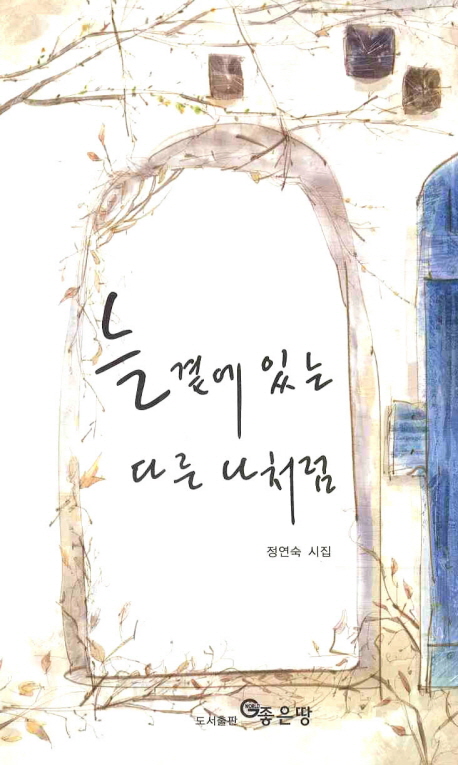 늘 곁에 있는
다른 나처럼
정연숙 시집
도서출판 좋은땅